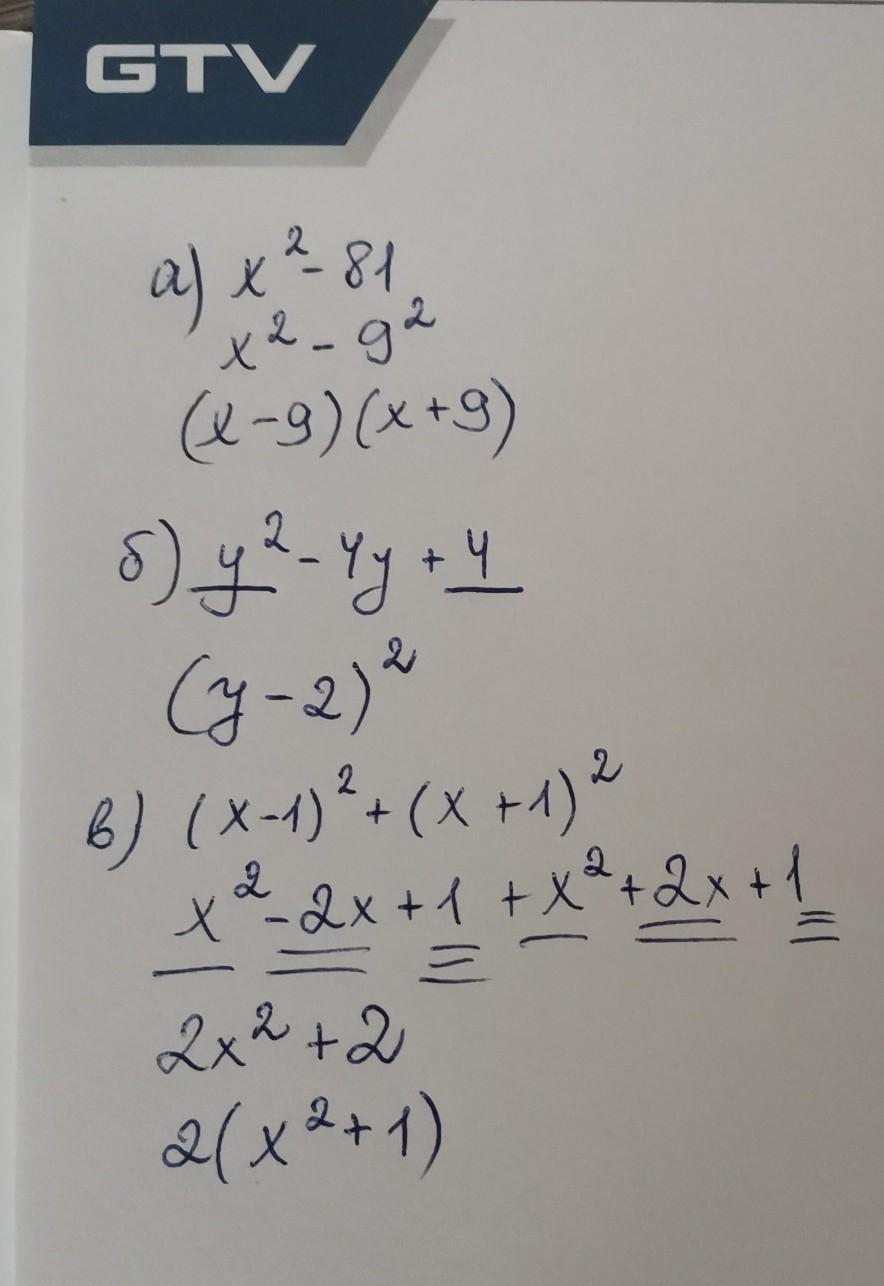 GTV
а) x² - 81
x² - 9²
(x - 9)(x + 9)
б) y² - 4y + 4
(y - 2)²
в) (x - 1)² + (x + 1)²
x² - 2x + 1 + x² + 2x + 1
2x² + 2
2(x² + 1)